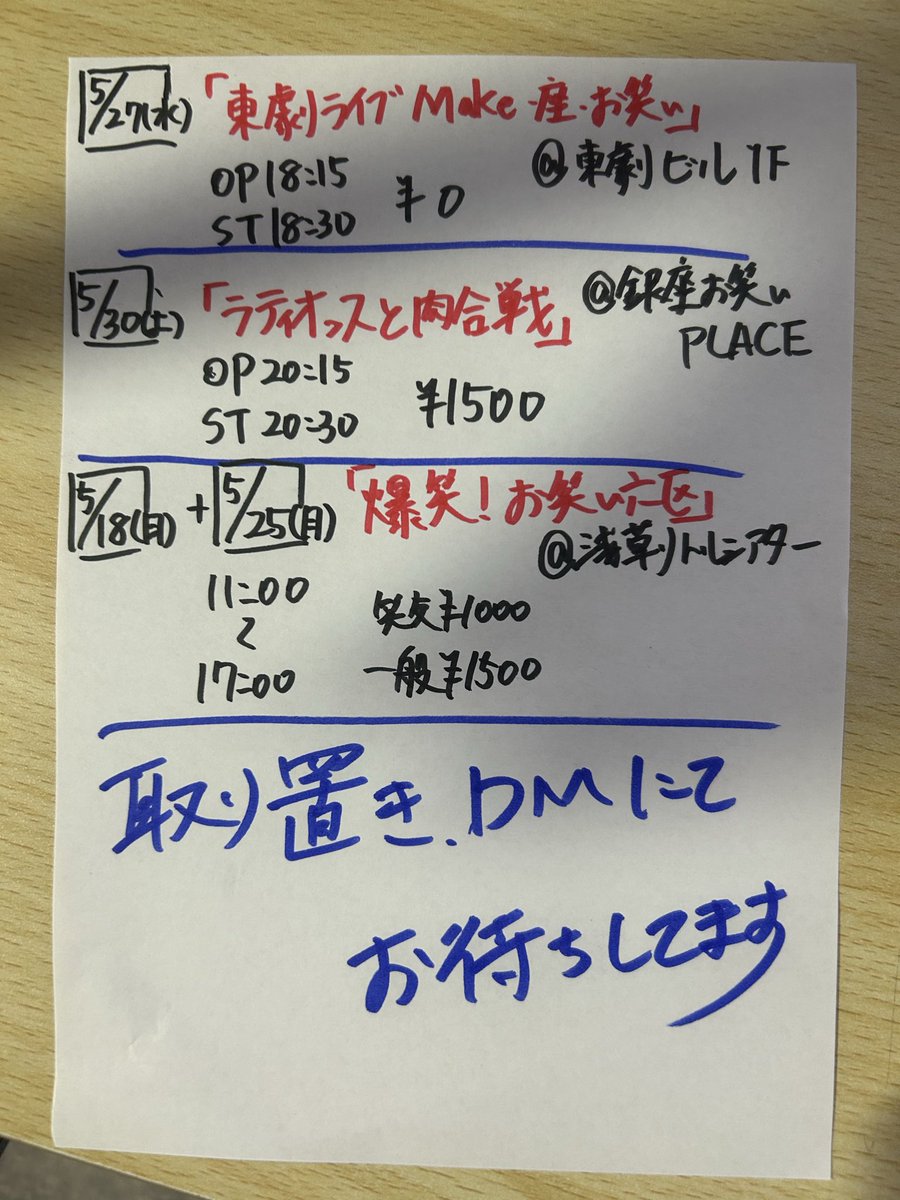 5/27(水) 「東劇ライブ Make 座・お笑い」
@東劇ビル1F
OP 18:15
ST 18:30
¥0
5/30(土) 「ラティオッスと肉合戦」
@銀座お笑い
PLACE
OP 20:15
ST 20:30
¥1500
5/18(月) + 5/25(月) 「爆笑!お笑い六区」
@浅草リトルシアター
11:00
〜
17:00
笑友¥1000
一般¥1500
取り置き、DMにて
お待ちしてます